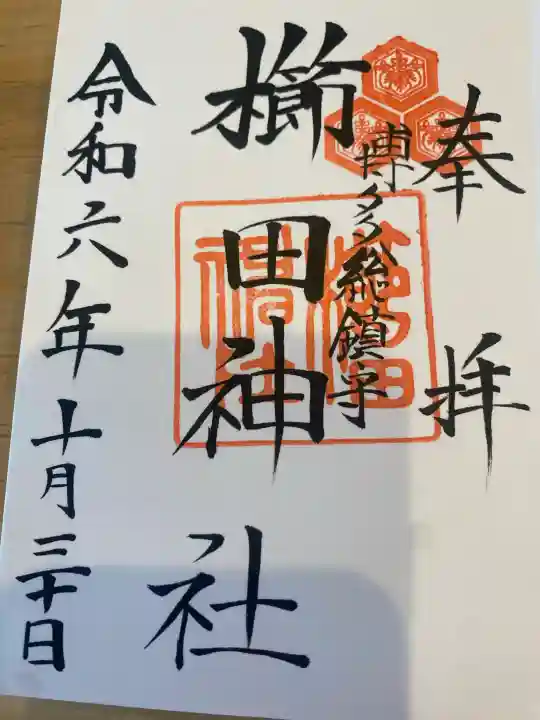 奉拝
博多総鎮守
櫛田神社
令和六年十月三十日